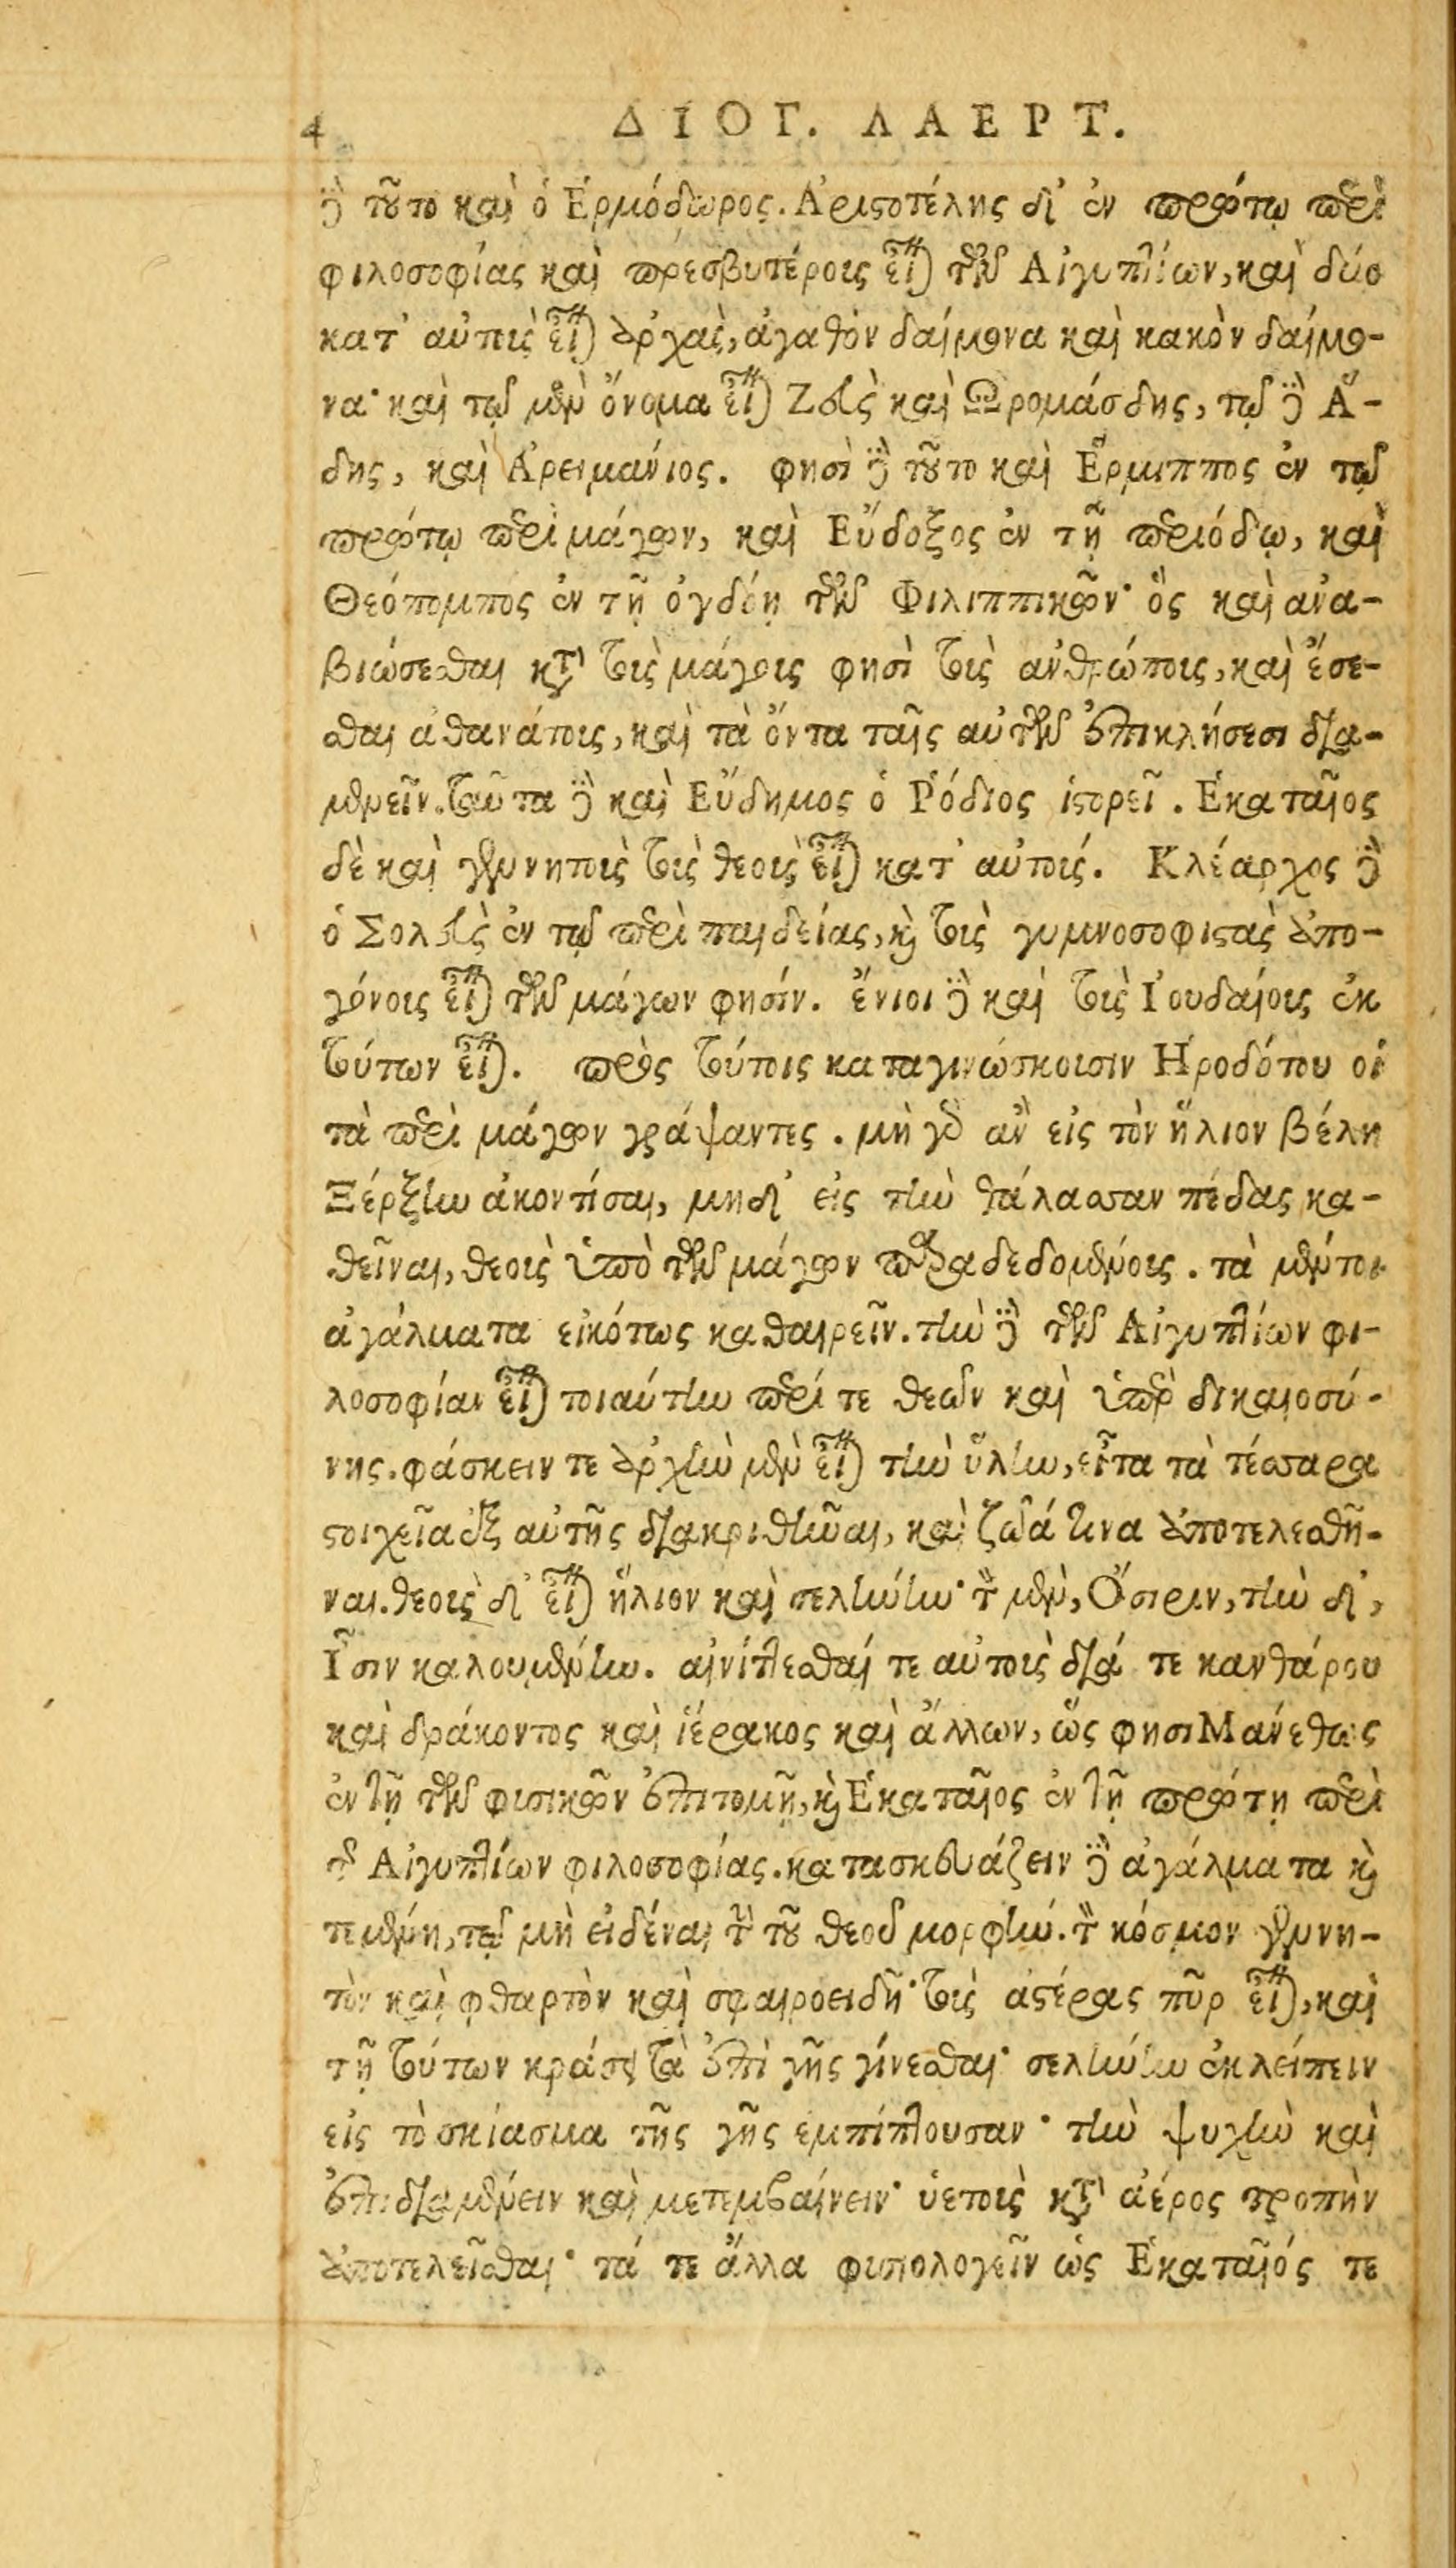 4 ΔΙΟΓ. ΛΑΕΡΤ.
δὲ τοῦτο καὶ ὁ Ἑρμόδωρος. Ἀριστοτέλης δ' ἐν πρώτῳ περὶ
φιλοσοφίας καὶ πρεσβυτέρους εἶναι τῶν Αἰγυπτίων, καὶ δύο
κατ' αὐτοὺς εἶναι ἀρχὰς, ἀγαθὸν δαίμονα καὶ κακὸν δαίμο-
να· καὶ τῷ μὲν ὄνομα εἶναι Ζεὺς καὶ Ὠρομάσδης, τῷ δὲ Ἅ-
δης, καὶ Ἀρειμάνιος. φησὶ δὲ τοῦτο καὶ Ἕρμιππος ἐν τῷ
πρώτῳ περὶ μάγων, καὶ Εὔδοξος ἐν τῇ περιόδῳ, καὶ
Θεόπομπος ἐν τῇ ὀγδόῃ τῶν Φιλιππικῶν· ὃς καὶ ἀνα-
βιώσεσθαι κατὰ τοὺς μάγους φησὶ τοὺς ἀνθρώπους, καὶ ἔσε-
σθαι ἀθανάτους, καὶ τὰ ὄντα ταῖς αὐτῶν ἐπικλήσεσι δια-
μενεῖν. ταῦτα δὲ καὶ Εὔδημος ὁ Ῥόδιος ἱστορεῖ. Ἑκαταῖος
δὲ καὶ γεννητοὺς τοὺς θεοὺς εἶναι κατ' αὐτούς. Κλέαρχος δὲ
ὁ Σολεὺς ἐν τῷ περὶ παιδείας, καὶ τοὺς γυμνοσοφιστὰς ἀπο-
γόνους εἶναι τῶν μάγων φησίν. ἔνιοι δὲ καὶ τοὺς Ἰουδαίους ἐκ
τούτων εἶναι. πρὸς τούτοις καταγινώσκουσιν Ἡροδότου οἱ
τὰ περὶ μάγων γράψαντες. μὴ γὰρ ἂν εἰς τὸν ἥλιον βέλη
Ξέρξην ἀκοντίσαι, μηδ' εἰς τὴν θάλασσαν πέδας κα-
θεῖναι, θεοὺς ὑπὸ τῶν μάγων παραδεδομένους. τὰ μέντοι
ἀγάλματα εἰκότως καθαιρεῖν. τὴν δὲ τῶν Αἰγυπτίων φι-
λοσοφίαν εἶναι τοιαύτην περί τε θεῶν καὶ ὑπὲρ δικαιοσύ-
νης. φάσκειν τε ἀρχὴν μὲν εἶναι τὴν ὕλην, εἶτα τὰ τέσσαρα
στοιχεῖα ἐξ αὐτῆς διακριθῆναι, καὶ ζῶά τινα ἀποτελεσθῆ-
ναι. θεοὺς δ' εἶναι ἥλιον καὶ σελήνην· τὸν μὲν, Ὄσιριν, τὴν δ',
Ἶσιν καλουμένην. αἰνίττεσθαί τε αὐτοὺς διά τε κανθάρου
καὶ δράκοντος καὶ ἱέρακος καὶ ἄλλων, ὥς φησι Μάνεθως
ἐν τῇ τῶν φυσικῶν ἐπιτομῇ, καὶ Ἑκαταῖος ἐν τῇ πρώτῃ περὶ
τῆς Αἰγυπτίων φιλοσοφίας. κατασκευάζειν δὲ ἀγάλματα καὶ
τεμένη, τῷ μὴ εἰδέναι τὴν τοῦ θεοῦ μορφήν. τὸν κόσμον γεννη-
τὸν καὶ φθαρτὸν καὶ σφαιροειδῆ· τοὺς ἀστέρας πῦρ εἶναι, καὶ
τῇ τούτων κράσει τὰ ἐπὶ γῆς γίνεσθαι· σελήνην ἐκλείπειν
εἰς τὸ σκίασμα τῆς γῆς ἐμπίπτουσαν· τὴν ψυχὴν καὶ
ἐπιδιαμένειν καὶ μετεμβαίνειν· ὑετοὺς κατὰ ἀέρος τροπὴν
ἀποτελεῖσθαι· τά τε ἄλλα φυσιολογεῖν ὡς Ἑκαταῖός τε